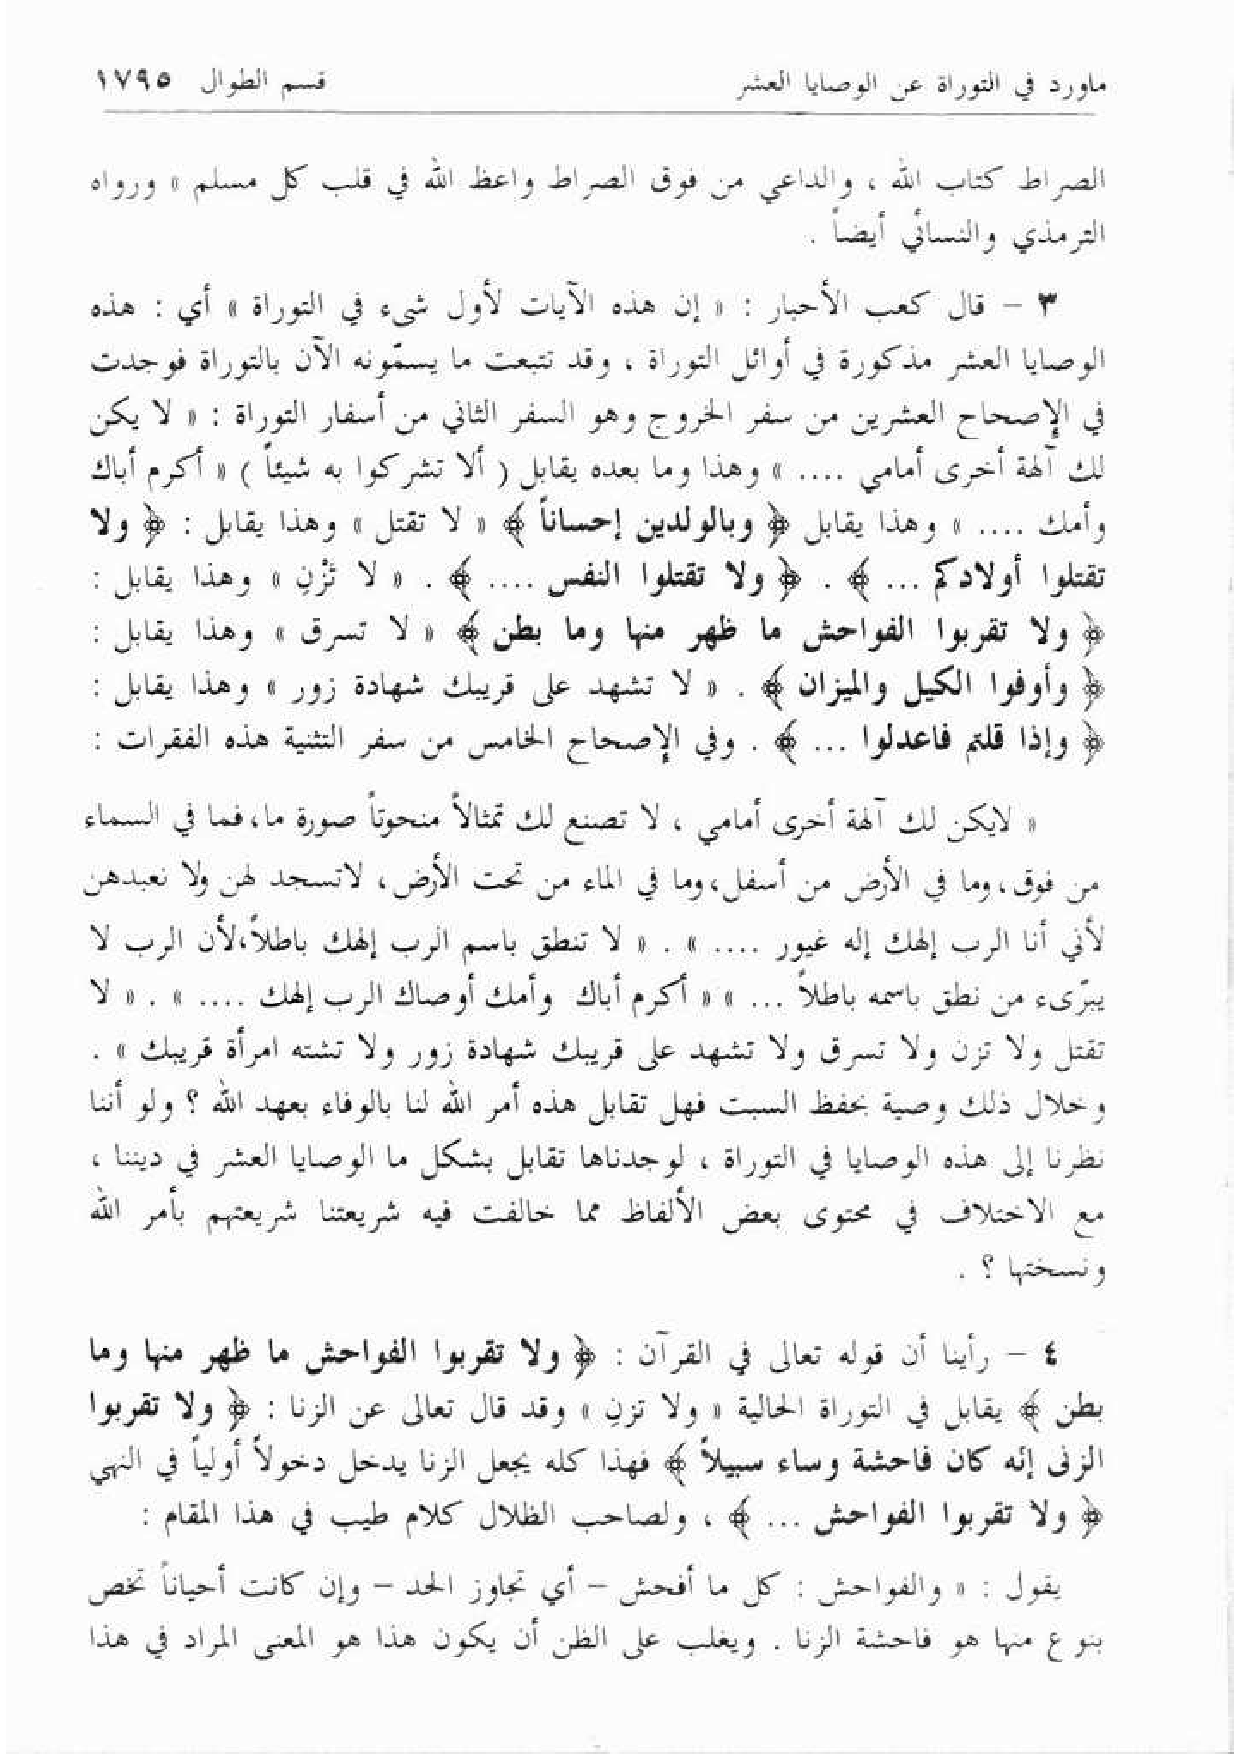 ماورد في التوراة عن الوصايا العشر قسم الطوال ١٧٩٥
الصراط كتاب الله ، والداعي من فوق الصراط واعظ الله في قلب كل مسلم » ورواه
الترمذي والنسائي أيضاً .
٣ – قال كعب الأحبار : « إن هذه الآيات لأول شيء في التوراة » أي : هذه
الوصايا العشر مذكورة في أوائل التوراة ، وقد تتبعت ما يسمّونه الآن بالتوراة فوجدت
في الإصحاح العشرين من سفر الخروج وهو السفر الثاني من أسفار التوراة : « لا يكن
لك آلهة أخرى أمامي .... » وهذا وما بعده يقابل ( ألا تشركوا به شيئاً ) « أكرم أباك
وأمك .... » وهذا يقابل ﴿ وبالوالدين إحساناً ﴾ « لا تقتل » وهذا يقابل : ﴿ ولا
تقتلوا أولادكم ... ﴾ . ﴿ ولا تقتلوا النفس .... ﴾ . « لا تَزْنِ » وهذا يقابل :
﴿ ولا تقربوا الفواحش ما ظهر منها وما بطن ﴾ « لا تسرق » وهذا يقابل :
﴿ وأوفوا الكيل والميزان ﴾ . « لا تشهد على قريبك شهادة زور » وهذا يقابل :
﴿ وإذا قلتم فاعدلوا ... ﴾ . وفي الإصحاح الخامس من سفر التثنية هذه الفقرات :
« لايكن لك آلهة أخرى أمامي ، لا تصنع لك تمثالاً منحوتاً صورة ما،فما في السماء
من فوق،وما في الأرض من أسفل،وما في الماء من تحت الأرض، لاتسجد لهن ولا تعبدهن
لأني أنا الرب إلهك إله غيور .... » . « لا تنطق باسم الرب إلهك باطلاً،لأن الرب لا
يبرّىء من نطق باسمه باطلاً ... » « أكرم أباك وأمك أوصاك الرب إلهك .... » . « لا
تقتل ولا تزن ولا تسرق ولا تشهد على قريبك شهادة زور ولا تشته امرأة قريبك » .
وخلال ذلك وصية بحفظ السبت فهل تقابل هذه أمر الله لنا بالوفاء بعهد الله ؟ ولو أننا
نظرنا إلى هذه الوصايا في التوراة ، لوجدناها تقابل بشكل ما الوصايا العشر في ديننا ،
مع الاختلاف في محتوى بعض الألفاظ مما خالفت فيه شريعتنا شريعتهم بأمر الله
ونسختها ؟ .
٤ – رأينا أن قوله تعالى في القرآن : ﴿ ولا تقربوا الفواحش ما ظهر منها وما
بطن ﴾ يقابل في التوراة الحالية « ولا تزنِ » وقد قال تعالى عن الزنا : ﴿ ولا تقربوا
الزنى إنه كان فاحشة وساء سبيلاً ﴾ فهذا كله يجعل الزنا يدخل دخولاً أولياً في النهي
﴿ ولا تقربوا الفواحش ... ﴾ ، ولصاحب الظلال كلام طيب في هذا المقام :
يقول : « والفواحش : كل ما أفحش – أي تجاوز الحد – وإن كانت أحياناً تخص
بنوع منها هو فاحشة الزنا . ويغلب على الظن أن يكون هذا هو المعنى المراد في هذا